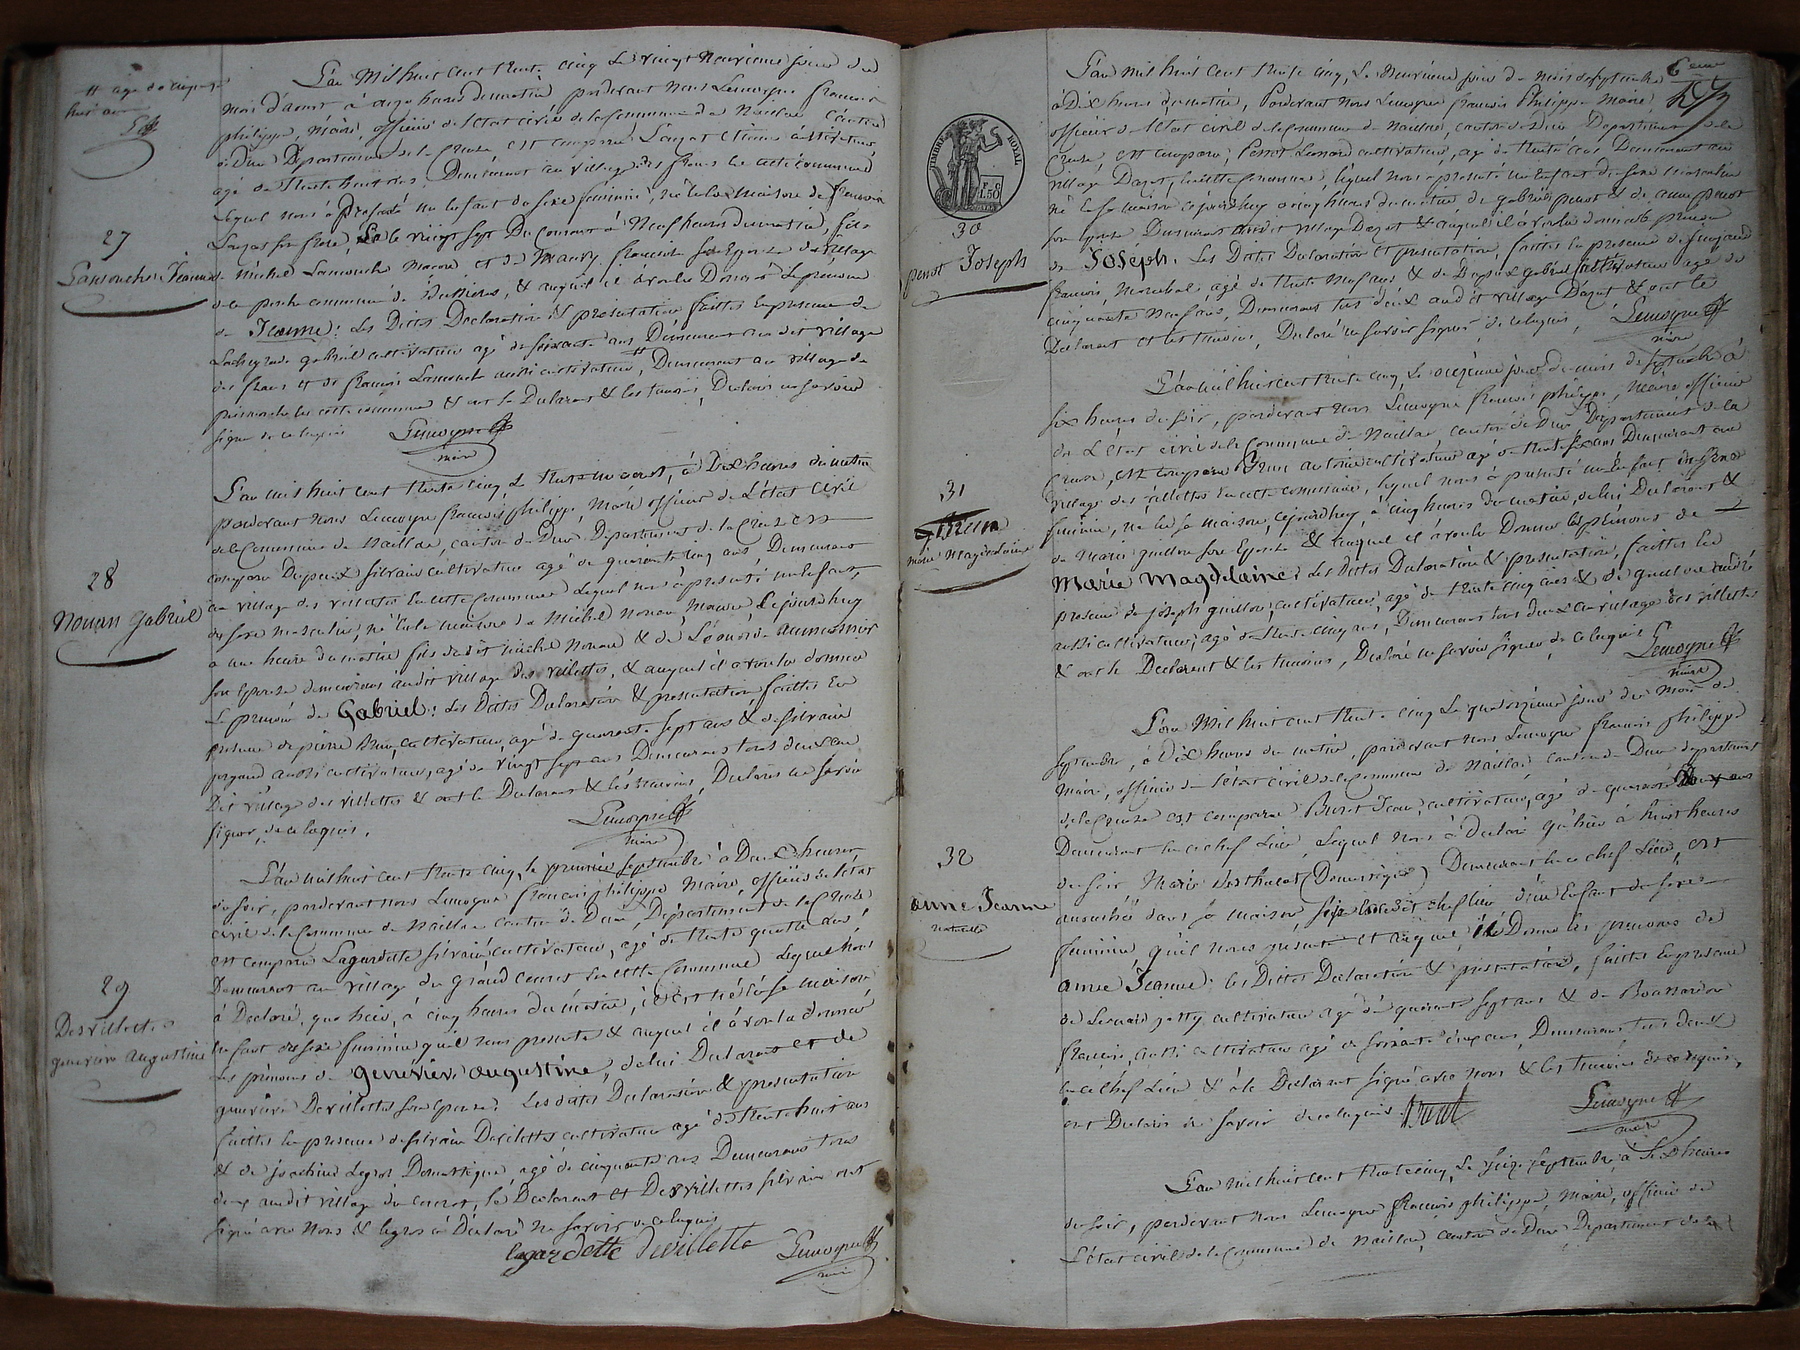 # agé de cinquante
huit ans
L'an Mil huit cent trente cinq Le vingt neuvieme jour du
mois d'aoust à onze heures du matin pardevant Nous Lemoyne francois
philippe, maire, officier de l'état civil de la Commune de Naillac Canton
de Dun Département de la Creuse, est comparu Lanzat Etienne cultivateur
agé de trente huit ans, Demeurant au village des frans en cette commune
Lequel nous a présenté un Enfant du sexe feminin, né en la maison de francois
Lanzat son frere, Le vingt sept Du Courant à Neuf heures du matin, fils
27
Lamouche Jeanne
de Michel Lamouche Macon et de Maury francoise son Epouse du village
de la commune de & auquel il a voulu Donner Le prénom
de Jeanne: Les Dittes Déclaration et présentation faittes En présence de
gabriel cultivateur agé de soixante ans Demeurant au dit village
des frans et de françois Lamouche aussi cultivateur, # Demeurant au village de
en cette commune & ont le Déclarant & les temoins, Déclaré ne savoir
signer de ce enquis Lemoyne
maire
L'an mil huit cent trente cinq, le trente un aoust, à Dix heures du matin
pardevant nous Lemoyne francois philippe Maire officier de L'état civil
de la Commune de Naillac, canton de Dun Département de la Creuse est
comparu Dupeux silvain cultivateur agé de quarante cinq ans Demeurant
28
Nouan Gabriel
au village des villettes En cette Commune Lequel nous a présenté un Enfant
du sexe masculin, né En la maison de Michel nouan, macon Cejourdhuy
a une heure du matin fils du dit michel Nouan & de Léonarde aumasson
son Epouse demeurans audit village des villettes, & auquel il a voulu donner
Le prénom de Gabriel: Les Dittes Déclaration & presentation faittes En
présence de pierre Brun, cultivateur, agé de quarante sept ans & de silvain
jorgand aussi cultivateur, agé de vingt sept ans Demeurans tous deux au
Dit village des villettes & ont le Déclarant & les temoins, Déclaré ne savoir
signer, de ce enquis. Lemoyne
maire
L'an mil huit cent trente cinq, le premier septembre à Deux heures
du soir, pardevant nous Lemoyne francois philippe Maire, officier de l'état
civil de la Commune de Naillac Canton de Dun, Département de la Creuse
est comparu Lagardette silvain cultivateur, agé de trente quatre ans
Demeurant au village du Grand Couret En cette Commune Lequel nous
29
Desvillettes
genevieve augustine
à Déclaré, que hier, à cinq heures du matin, est né En sa maison
un Enfant du sexe feminin qu'il nous presente & auquel il a voulu donner
Les prénoms de genevieve augustine, de lui Déclarant et de
genevieve Desvillettes son épouse: Les dittes Déclaration & presentation
faittes En presence de silvain Desvillettes cultivateur agé de trente huit ans
& de joachim Legros Domestique, agé de cinquante ans Demeurans tous
deux audit village du couret, le Déclarant et Desvillettes silvain ont
signé avec Nous & legros à Déclaré ne savoir de ce enquis
lagardette Devillette Lemoyne
maire
6eme
L'an mil huit cent trente cinq, Le Neuvieme jour du mois de septembre
à Dix heures du matin, Pardevant Nous Lemoyne francois Philippe Maire
officier de l'état civil de la Commune de Naillac, canton de Dun Département de la
Creuse, est comparu; Penot Léonard cultivateur, agé de trente ans Demeurant au
village Dazat, En cette Commune, lequel nous a présenté un Enfant du sexe masculin
né En sa maison cejourdhuy a cinq heures du matin de gabriel penot & de anne penot
TIMBRE ROYAL
1.50
30
penot Joseph
son épouse Demeurans audit village Dazat & auquel il à voulu donner le prénom
de Joseph. Les Dittes Déclaration et présentation, faittes En présence de
francois, Maréchal, agé de trente Neuf ans & de Dupeux gabriel cultivateur agé de
cinquante Neuf ans, Demeurans tous deux audit village Dazat & ont le
Déclarant et les temoins, Déclaré ne savoir signer de ce enquis, Lemoyne
maire
L'an mil huit cent trente cinq, Le onzieme jour du mois de septembre à
six heures du soir, pardevant nous Lemoyne francois philippe, Maire officier
de L'état civil de la Commune de Naillac, canton de Dun, Département de la
Creuse, est comparu Brun antoine cultivateur agé de trente six ans Demeurant au
31
Brun
marie Magdelaine
village des villettes En cette commune, lequel nous à présenté un Enfant du sexe
feminin, né En sa maison, cejourdhuy, à cinq heures du matin, de lui Déclarant &
de Marie guillon son Epouse & auquel il a voulu Donner les prénoms de
Marie Magdelaine: Les Dittes Déclaration & presentation, faittes En
presence de joseph guillon, cultivateur, agé de trente cinq ans & de
aussi cultivateur, agé de trente cinq ans, Demeurans tous deux au village des villettes
& ont le Déclarant & les temoins, Déclaré ne savoir signer de ce enquis Lemoyne
maire
L'an Mil huit cent trente cinq Le quatorzieme jour du Mois de
septembre, à Dix heures du matin, pardevant nous Lemoyne francois philippe
Maire, officier de l'état civil de la Commune de Naillac canton de Dun département
de la Creuse est comparu Buret Jean, cultivateur, agé de quarante Deux ans
Demeurant En ce chef Lieu, Lequel nous à Déclaré qu'hier à huit heures
32
anne Jeanne
naturelle
du soir, Marie (Domestique) Demeurant En ce chef Lieu, est
accouchée dans sa maison sise audit chef lieu d'un Enfant du sexe
feminin, qu'il nous présente et auquel il Donne les prenoms de
anne Jeanne: les Dittes Déclaration & presentation, faittes En presence
de Léonard petty cultivateur agé de quarante sept ans & de Bonnardon
francois, aussi cultivateur agé de soixante cinq ans, Demeurans tous deux
En ce chef Lieu & à le Déclarant signé avec nous & les temoins de ce enquis,
ont Déclaré ne savoir de ce enquis. Buret Lemoyne
maire
L'an mil huit cent trente cinq, Le seize septembre, à Six heures
du soir, pardevant nous Lemoyne francois philippe, Maire, officier de
L'état civil de la Commune de Naillac, canton de Dun Département de la